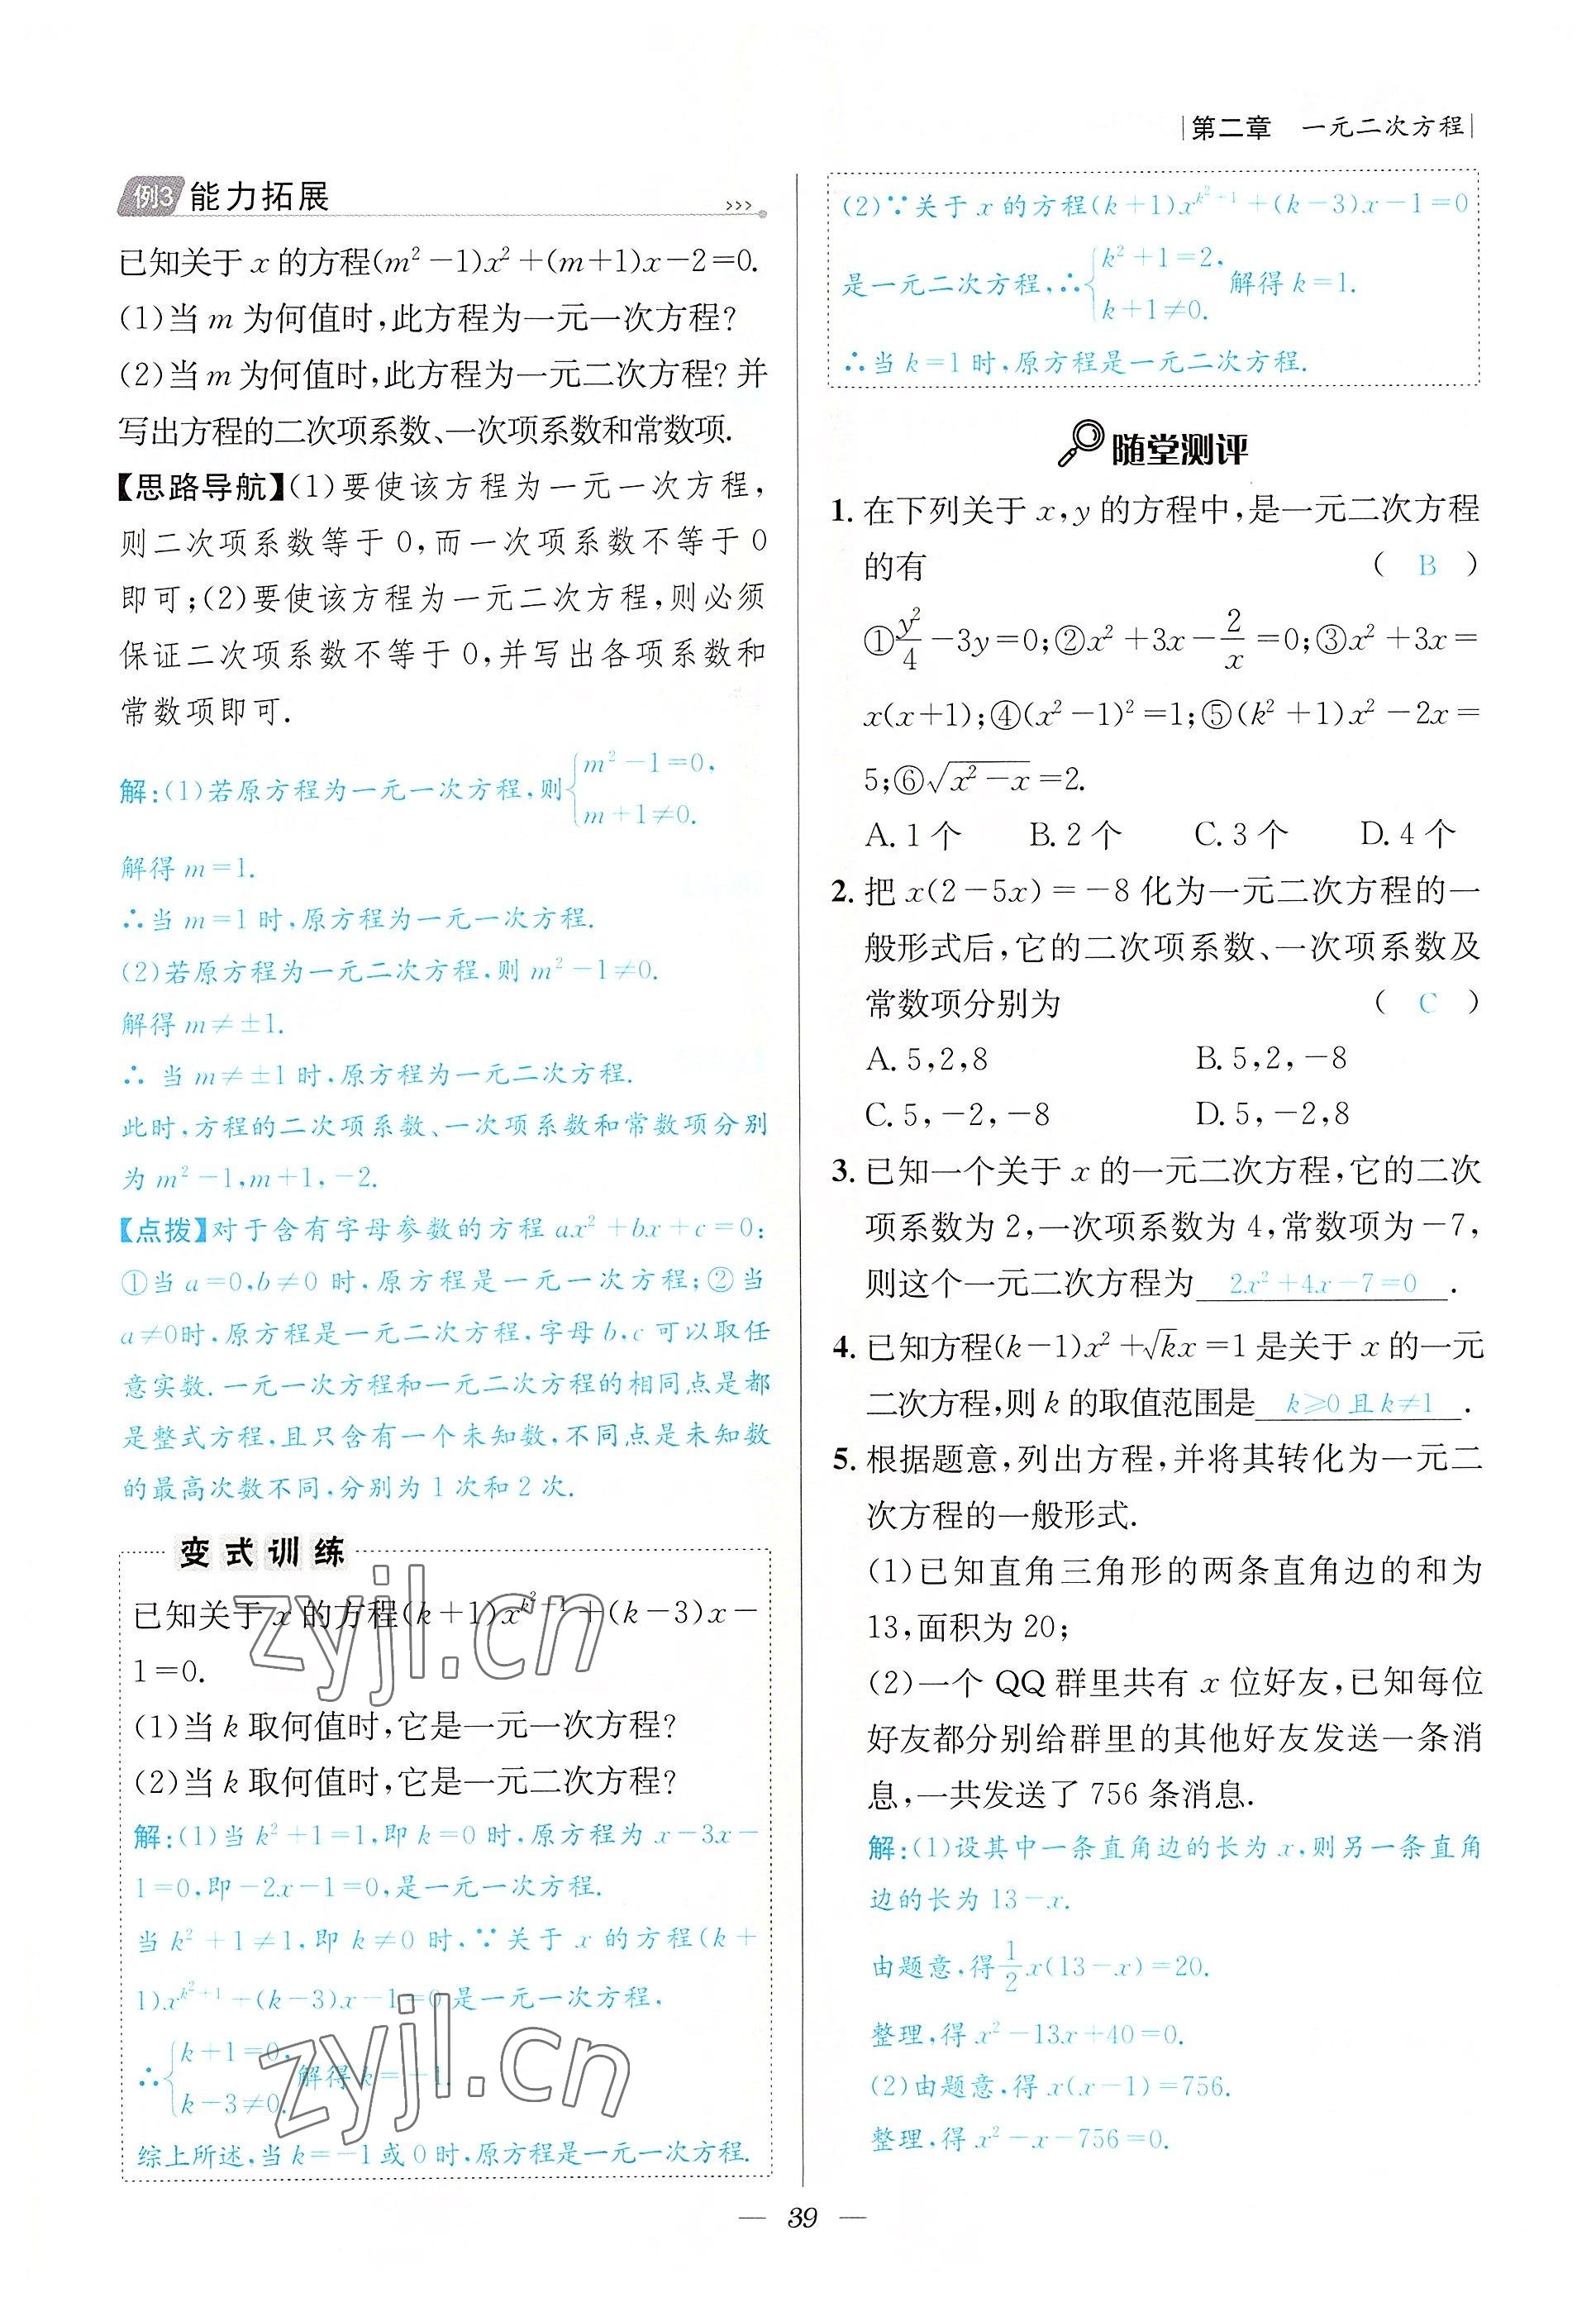 |第二章 一元二次方程|
例3 能力拓展 >>>
已知关于 x 的方程(m²－1)x²＋(m＋1)x－2＝0.
(1)当 m 为何值时,此方程为一元一次方程?
(2)当 m 为何值时,此方程为一元二次方程? 并
写出方程的二次项系数、一次项系数和常数项.
【思路导航】(1)要使该方程为一元一次方程,
则二次项系数等于 0,而一次项系数不等于 0
即可;(2)要使该方程为一元二次方程,则必须
保证二次项系数不等于 0,并写出各项系数和
常数项即可.
解:(1)若原方程为一元一次方程,则{m²－1＝0,
m＋1≠0.
解得 m＝1.
∴当 m＝1 时,原方程为一元一次方程.
(2)若原方程为一元二次方程,则 m²－1≠0.
解得 m≠±1.
∴ 当 m≠±1 时,原方程为一元二次方程.
此时,方程的二次项系数、一次项系数和常数项分别
为 m²－1,m＋1,－2.
【点拨】对于含有字母参数的方程 ax²＋bx＋c＝0:
①当 a＝0,b≠0 时,原方程是一元一次方程;②当
a≠0时,原方程是一元二次方程,字母 b,c 可以取任
意实数.一元一次方程和一元二次方程的相同点是都
是整式方程,且只含有一个未知数,不同点是未知数
的最高次数不同,分别为 1 次和 2 次.
变式训练
已知关于 x 的方程(k＋1)x^{k²＋1}＋(k－3)x－
1＝0.
(1)当 k 取何值时,它是一元一次方程?
(2)当 k 取何值时,它是一元二次方程?
解:(1)当 k²＋1＝1,即 k＝0 时,原方程为 x－3x－
1＝0,即－2x－1＝0,是一元一次方程.
当 k²＋1≠1,即 k≠0 时,∵关于 x 的方程(k＋
1)x^{k²＋1}＋(k－3)x－1＝0是一元一次方程,
∴{k＋1＝0,
k－3≠0.
解得 k＝－1.
综上所述,当 k＝－1 或 0 时,原方程是一元一次方程.
zyjl.cn
zyjl.cn
(2)∵关于 x 的方程(k＋1)x^{k²＋1}＋(k－3)x－1＝0
是一元二次方程,∴{k²＋1＝2,
k＋1≠0.
解得 k＝1.
∴当 k＝1 时,原方程是一元二次方程.
随堂测评
1. 在下列关于 x,y 的方程中,是一元二次方程
的有 ( B )
①y²/4－3y＝0;②x²＋3x－2/x＝0;③x²＋3x＝
x(x＋1);④(x²－1)²＝1;⑤(k²＋1)x²－2x＝
5;⑥√(x²－x)＝2.
A. 1 个 B. 2 个 C. 3 个 D. 4 个
2. 把 x(2－5x)＝－8 化为一元二次方程的一
般形式后,它的二次项系数、一次项系数及
常数项分别为 ( C )
A. 5,2,8 B. 5,2,－8
C. 5,－2,－8 D. 5,－2,8
3. 已知一个关于 x 的一元二次方程,它的二次
项系数为 2,一次项系数为 4,常数项为－7,
则这个一元二次方程为 2x²＋4x－7＝0 .
4. 已知方程(k－1)x²＋√kx＝1 是关于 x 的一元
二次方程,则 k 的取值范围是 k≥0 且 k≠1 .
5. 根据题意,列出方程,并将其转化为一元二
次方程的一般形式.
(1)已知直角三角形的两条直角边的和为
13,面积为 20;
(2)一个 QQ 群里共有 x 位好友,已知每位
好友都分别给群里的其他好友发送一条消
息,一共发送了 756 条消息.
解:(1)设其中一条直角边的长为 x,则另一条直角
边的长为 13－x.
由题意,得1/2x(13－x)＝20.
整理,得 x²－13x＋40＝0.
(2)由题意,得 x(x－1)＝756.
整理,得 x²－x－756＝0.
— 39 —